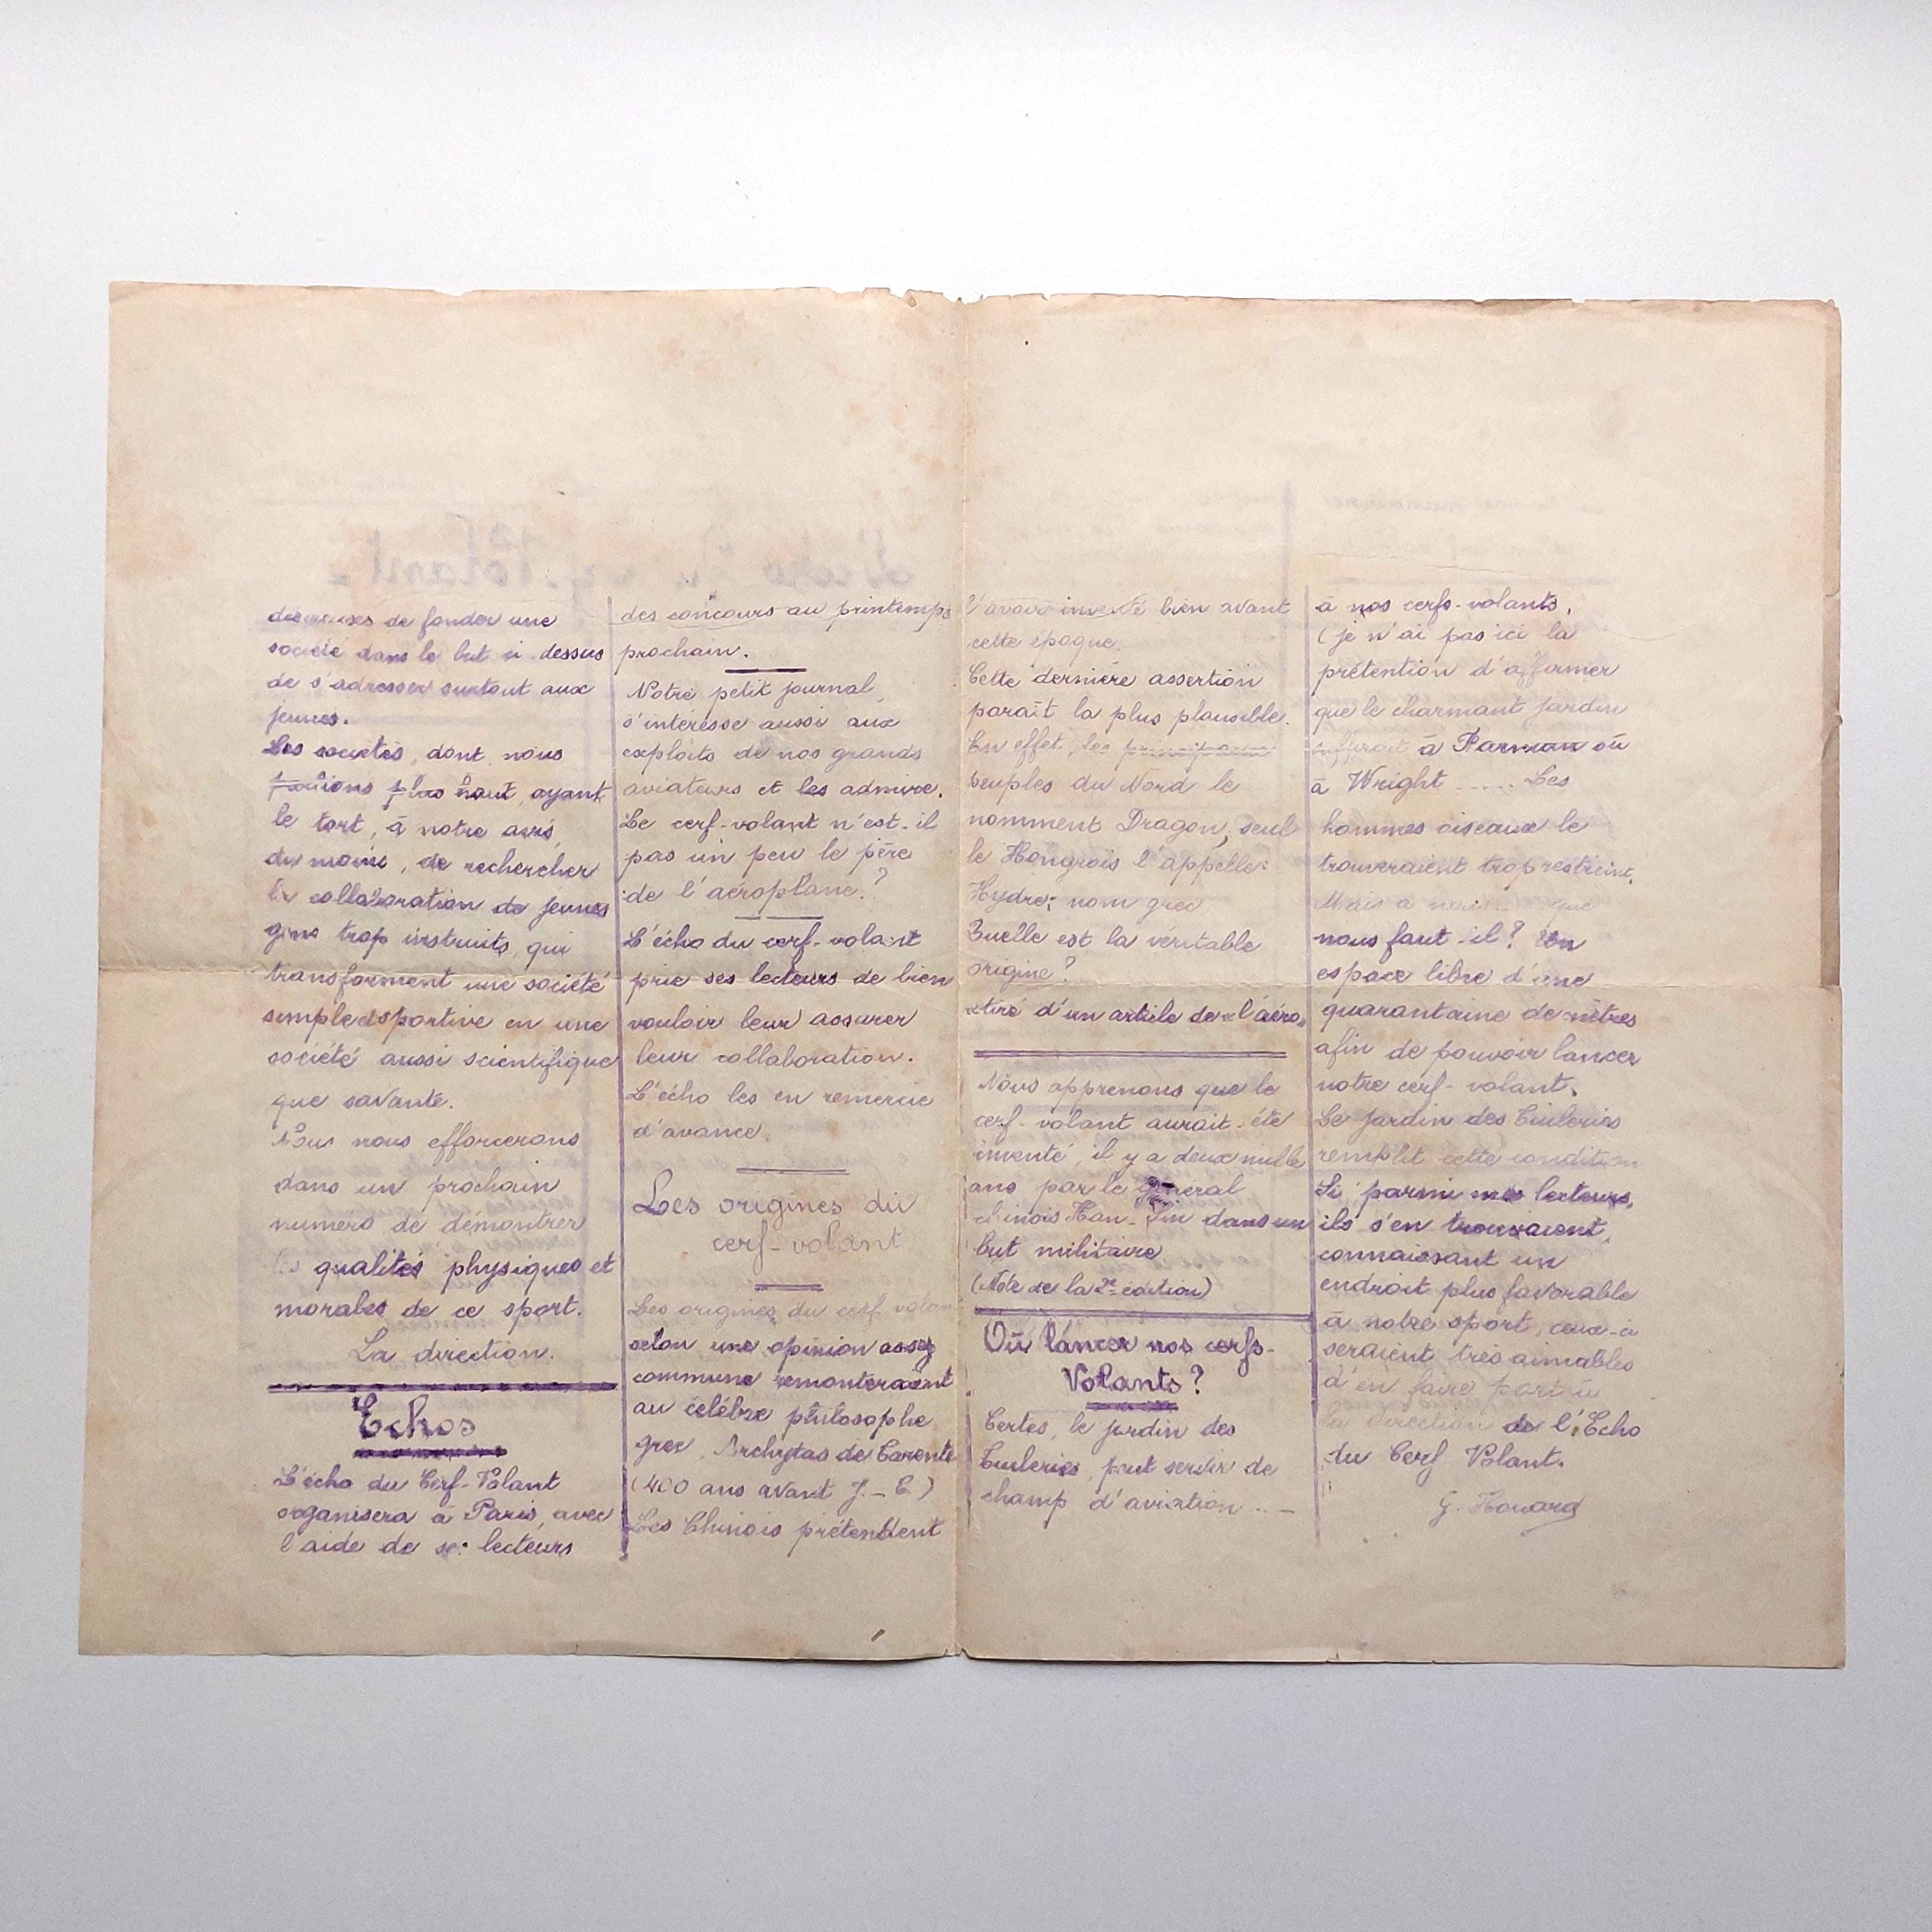 désireuses de fonder une
société dans le but ci-dessus
de s'adresser surtout aux
jeunes.
Les sociétés, dont nous
plus haut, ayant
le tort, à notre avis,
du moins, de rechercher
la collaboration de jeunes
gens trop instruits, qui
transforment une société
simple sportive en une
société aussi scientifique
que savante.
Nous nous efforcerons
dans un prochain
numéro de démontrer
les qualités physiques et
morales de ce sport.
La direction.
Echos
L'écho du Cerf-Volant
organisera à Paris, avec
l'aide de ses lecteurs
des concours au printemps
prochain.
Notre petit journal,
s'intéresse aussi aux
exploits de nos grands
aviateurs et les admire.
Le cerf-volant n'est-il
pas un peu le père
de l'aéroplane?
L'écho du cerf-volant
prie ses lecteurs de bien
vouloir leur assurer
leur collaboration.
L'écho les en remercie
d'avance.
Les origines du
cerf-volant
Les origines du cerf-volant
selon une opinion assez
commune remonteraient
au célèbre philosophe
grec, Archytas de Tarente
(400 ans avant J.-C)
Les Chinois prétendent
l'avoir inventé bien avant
cette époque.
Cette dernière assertion
paraît la plus plausible.
En effet, les
peuples du Nord le
nomment Dragon, seul
le Hongrois l'appelle:
Hydre; nom grec
Quelle est la véritable
origine?
tiré d'un article de «l'aéro»
Nous apprenons que le
cerf-volant aurait-été
inventé, il y a deux mille
ans par le général
chinois Han-Sin dans un
but militaire
(Note de la 2e édition)
Où lancer nos cerfs-
Volants?
Certes, le jardin des
Tuileries, peut servir de
champ d'aviation ..-
à nos cerfs-volants.
(je n'ai pas ici la
prétention d'affirmer
que le charmant jardin
suffirait à Farman ou
à Wright ..... Les
hommes oiseaux le
trouveraient trop restreint.
Mais à nous que
nous faut-il? Un
espace libre d'une
quarantaine de mètres
afin de pouvoir lancer
notre cerf-volant.
Le jardin des Tuileries
remplit cette condition
Si parmi nos lecteurs,
ils s'en trouvaient,
connaissant un
endroit plus favorable
à notre sport, ceux-ci
seraient très aimables
d'en faire part à
la direction de l'Echo
du Cerf Volant.
G. Houard